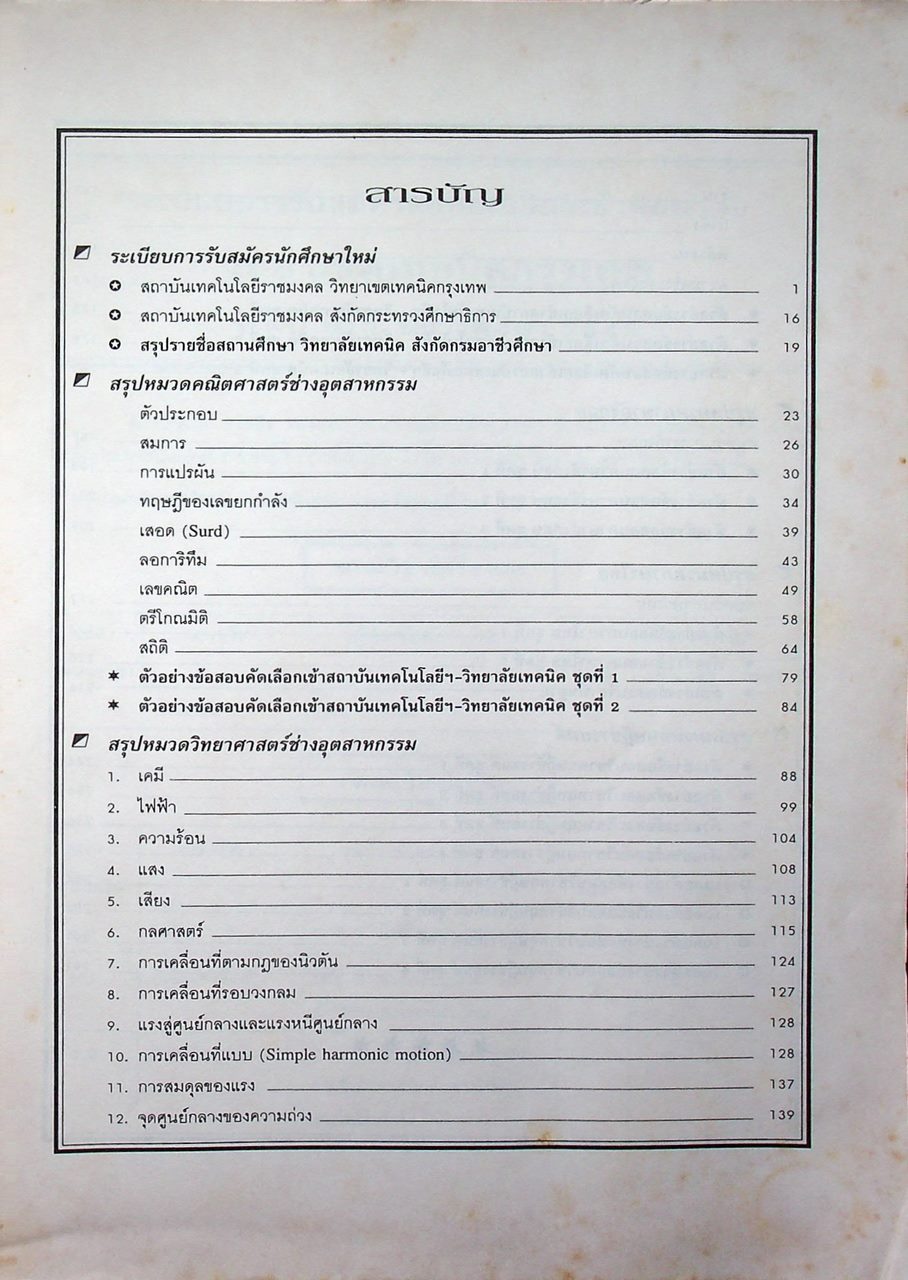 สารบัญ
ระเบียบการรับสมัครนักศึกษาใหม่
✪ สถาบันเทคโนโลยีราชมงคล วิทยาเขตเทคนิคกรุงเทพ 1
✪ สถาบันเทคโนโลยีราชมงคล สังกัดกระทรวงศึกษาธิการ 16
✪ สรุปรายชื่อสถานศึกษา วิทยาลัยเทคนิค สังกัดกรมอาชีวศึกษา 19
สรุปหมวดคณิตศาสตร์ช่างอุตสาหกรรม
ตัวประกอบ 23
สมการ 26
การแปรผัน 30
ทฤษฎีของเลขยกกำลัง 34
เสอด (Surd) 39
ลอการิทึม 43
เลขคณิต 49
ตรีโกณมิติ 58
สถิติ 64
✶ ตัวอย่างข้อสอบคัดเลือกเข้าสถาบันเทคโนโลยีฯ-วิทยาลัยเทคนิค ชุดที่ 1 79
✶ ตัวอย่างข้อสอบคัดเลือกเข้าสถาบันเทคโนโลยีฯ-วิทยาลัยเทคนิค ชุดที่ 2 84
สรุปหมวดวิทยาศาสตร์ช่างอุตสาหกรรม
1. เคมี 88
2. ไฟฟ้า 99
3. ความร้อน 104
4. แสง 108
5. เสียง 113
6. กลศาสตร์ 115
7. การเคลื่อนที่ตามกฎของนิวตัน 124
8. การเคลื่อนที่รอบวงกลม 127
9. แรงสู่ศูนย์กลางและแรงหนีศูนย์กลาง 128
10. การเคลื่อนที่แบบ (Simple harmonic motion) 128
11. การสมดุลของแรง 137
12. จุดศูนย์กลางของความถ่วง 139